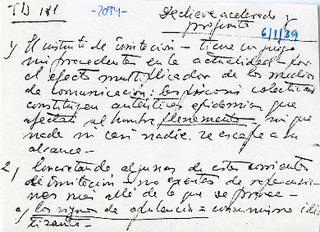 TD 181 -2094- Declive acelerado y
profundo
6/1/89
1) El instinto de imitación - tiene un juego
sin precedentes en la actualidad - por
el efecto multiplicador de los medios
de comunicación: las psicosis colectivas
constituyen auténticas epidemias que
afectan al hombre plenamente, sin que
nada ni casi nadie se escape a su
alcance -
2) Concretando algunas de estas corrientes
de imitación - no exentas de repercusio-
nes más allá de lo que se prevee -
a) los signos de opulencia = consumismo